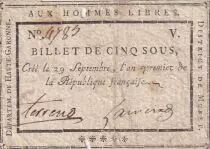 AUX HOMMES LIBRES.
No. 4785 V.
BILLET DE CINQ SOUS,
Créé le 29 Septembre, l'an premier de
la République française.
DÉPARTEM. DE HAUTE-GARONNE.
DISTRICT DE